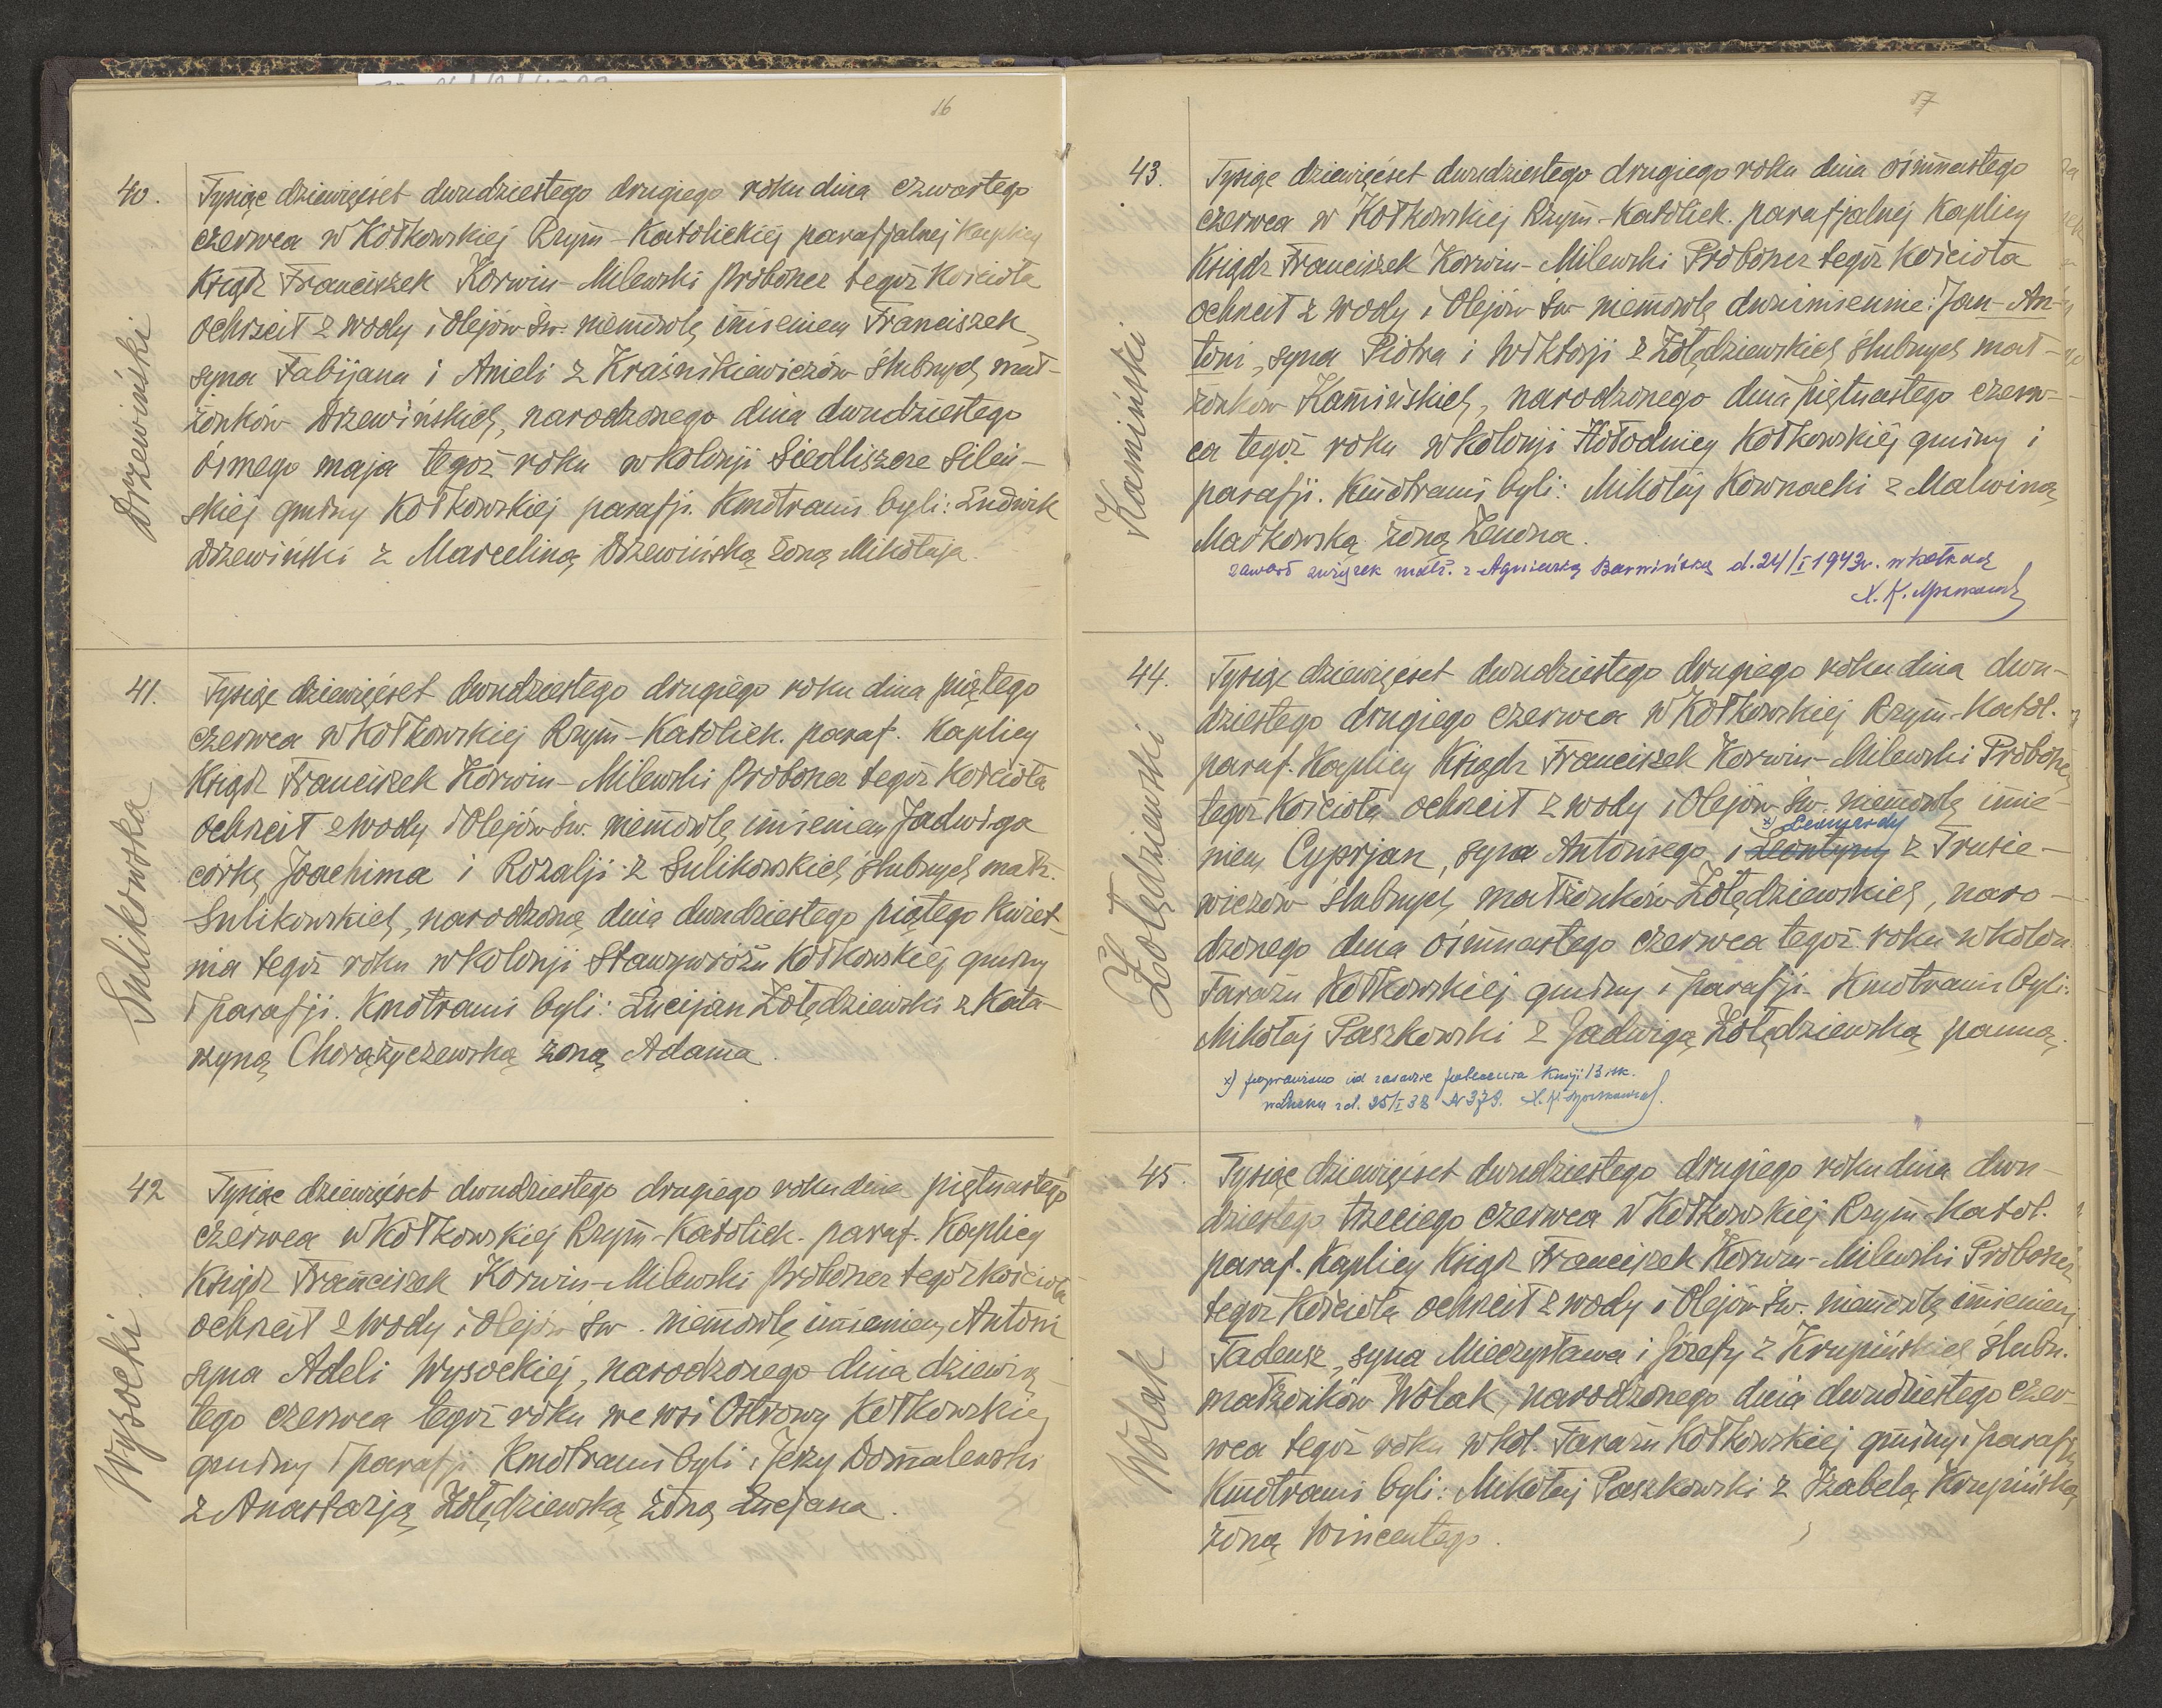 16
40.
Drzewiński
Tysiąc dziewięćset dwudziestego drugiego roku dnia czwartego
czerwca w Kołkowskiej Rzym-Katolickiej parafjalnej Kaplicy
Ksiądz Franciszek Korwin-Milewski Proboszcz tegoż Kościoła
ochrzcił z wody i Olejów Św. niemowlę imieniem Franciszek,
syna Fabijana i Anieli z Kraśnikiewiczów ślubnych mał-
żonków Drzewińskich, narodzonego dnia dwudziestego
ósmego maja tegoż roku w kolonji Siedliszcze Sileń-
skiej gminy Kołkowskiej parafji. Kmotrami byli: Ludwik
Drzewiński z Marceliną Drzewińską żoną Mikołaja.
41.
Sulikowska
Tysiąc dziewięćset dwudziestego drugiego roku dnia piątego
czerwca w Kołkowskiej Rzym-Katolick. paraf. Kaplicy
Ksiądz Franciszek Korwin-Milewski Proboszcz tegoż Kościoła
ochrzcił z wody i Olejów Św. niemowlę imieniem Jadwiga
córkę Joachima i Rozalji z Sulikowskich ślubnych małż.
Sulikowskich, narodzoną dnia dwudziestego piątego kwiet-
nia tegoż roku w kolonji Stawzywróżu Kołkowskiej gminy
i parafji. Kmotrami byli: Lucijan Żołędziewski z Kata-
rzyną Chorążyczewską żoną Adama.
42
Wysocki.
Tysiąc dziewięćset dwudziestego drugiego roku dnia piętnastego
czerwca w Kołkowskiej Rzym-Katolick. paraf. Kaplicy
Ksiądz Franciszek Korwin-Milewski Proboszcz tegoż Kościoła
ochrzcił z wody i Olejów Św. niemowlę imieniem Antoni
syna Adeli Wysockiej, narodzonego dnia dziewią-
tego czerwca tegoż roku we wsi Ostrowy Kołkowskiej
gminy i parafji. Kmotrami byli: Jerzy Domalewski
z Anastazją Żołędziewską żoną Lucjana.
17
43.
Kamiński
Tysiąc dziewięćset dwudziestego drugiego roku dnia ośmnastego
czerwca w Kołkowskiej Rzym-Katolick. parafjalnej Kaplicy
Ksiądz Franciszek Korwin-Milewski Proboszcz tegoż Kościoła
ochrzcił z wody i Olejów Św. niemowlę dwuimiennie: Jan-An-
toni, syna Piotra i Wiktorji z Żołędziewskich ślubnych mał-
żonków Kamińskich, narodzonego dnia piętnastego czerw-
ca tegoż roku w kolonji Hołodnicy Kołkowskiej gminy i
parafji. Kmotrami byli: Mikołaj Kownacki z Malwiną
Maćkowską żoną Zenona.
zawarł związek małż. z Agnieszką Barwińską d. 24/I 1943r. w Kołkach
44.
Żołędziewski.
Tysiąc dziewięćset dwudziestego drugiego roku dnia dwu-
dziestego drugiego czerwca w Kołkowskiej Rzym-Katol.
paraf. Kaplicy Ksiądz Franciszek Korwin-Milewski Proboszcz
tegoż Kościoła ochrzcił z wody i Olejów Św. niemowlę imie-
x) Leonardy
niem Cyprjan, syna Antoniego i Leontyny z Trusie-
wiczów ślubnych małżonków Żołędziewskich, naro-
dzonego dnia ośmnastego czerwca tegoż roku w kolon.
Tarażu Kołkowskiej gminy i parafji. Kmotrami byli:
Mikołaj Paszkowski z Jadwigą Żołędziewską panną.
x) poprawiono na zasadzie polecenia Kurji Bisk.
w Łucku z d. 25/I 38 № 379.
45.
Wolak
Tysiąc dziewięćset dwudziestego drugiego roku dnia dwu-
dziestego trzeciego czerwca w Kołkowskiej Rzym-Katol.
paraf. Kaplicy Ksiądz Franciszek Korwin-Milewski Proboszcz
tegoż Kościoła ochrzcił z wody i Olejów Św. niemowlę imieniem
Tadeusz, syna Mieczysława i Józefy z Krupińskich ślubn.
małżonków Wolak, narodzonego dnia dwudziestego czer-
wca tegoż roku w kol. Tarażu Kołkowskiej gminy i parafji
Kmotrami byli: Mikołaj Paszkowski z Izabelą Krupińską
żoną Wincentego.